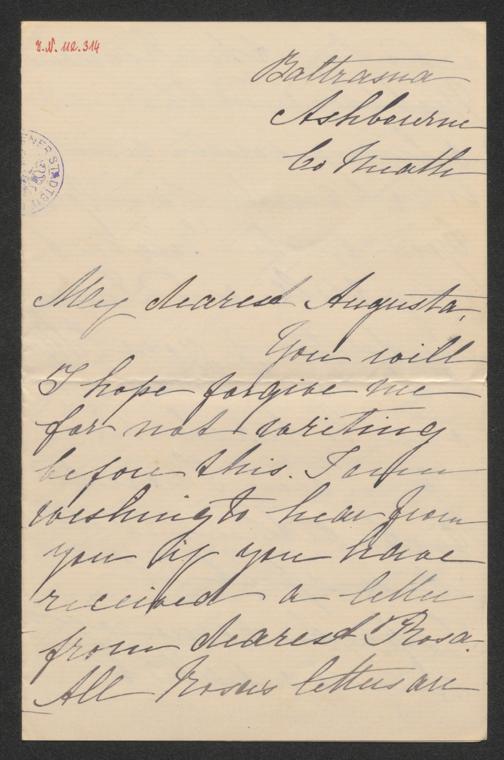 I.N. 112.314
Baltrasna
Ashbourne
Co Meath
My dearest Augusta,
You will
I hope forgive me
for not writing
before this. I am
wishing to hear from
you if you have
received a letter
from dearest Rosa.
All Rosa's letters are